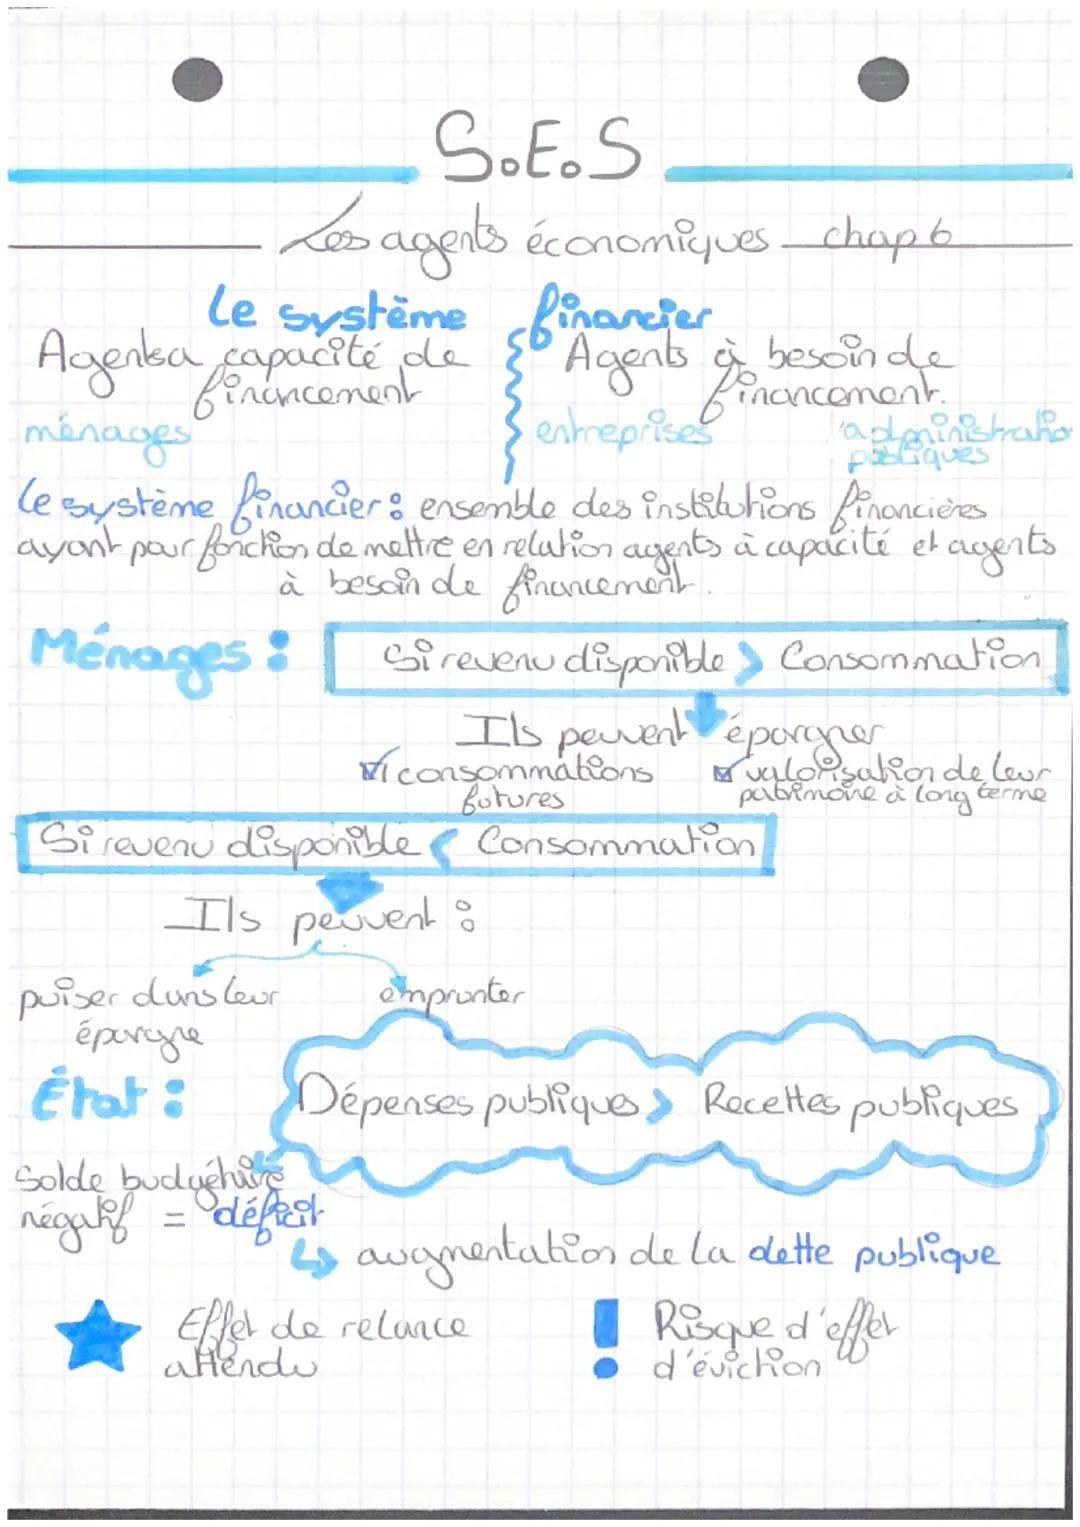 S.E.S
Les agents économiques chap 6
Le système financier
Agents à capacité de financement
ménages
Agents à besoin de financement.
entreprises
administratio
publiques
Le système financier : ensemble des institutions financières
ayant pour fonction de mettre en relation agents à capacité et agents
à besoin de financement.
Ménages :
Si revenu disponible > Consommation
Ils peuvent épargner
consommations
futures
valorisation de leur
patrimoine à long terme
Si revenu disponible < Consommation
Ils peuvent :
puiser dans leur
épargne
emprunter
État :
Dépenses publiques > Recettes publiques
Solde budgétaire
négatif = déficit
↳ augmentation de la dette publique
Effet de relance
attendu
! Risque d'effet
d'éviction